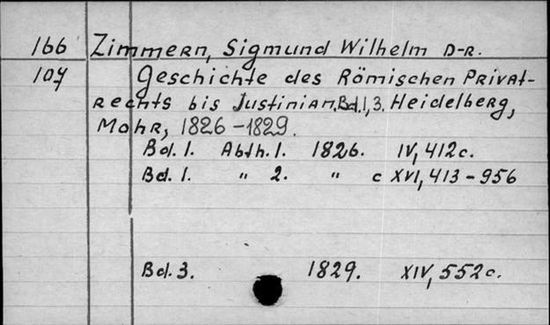 166 Zimmern, Sigmund Wilhelm D-r.
104 Geschichte des Römischen Privat-
rechts bis Justinian. Bd. 1, 3. Heidelberg,
Mohr, 1826-1829.
Bd. 1. Abth. 1. 1826. IV, 412 c.
Bd. 1. " 2. " c XVI, 413-956
Bd. 3. 1829. XIV, 552 c.